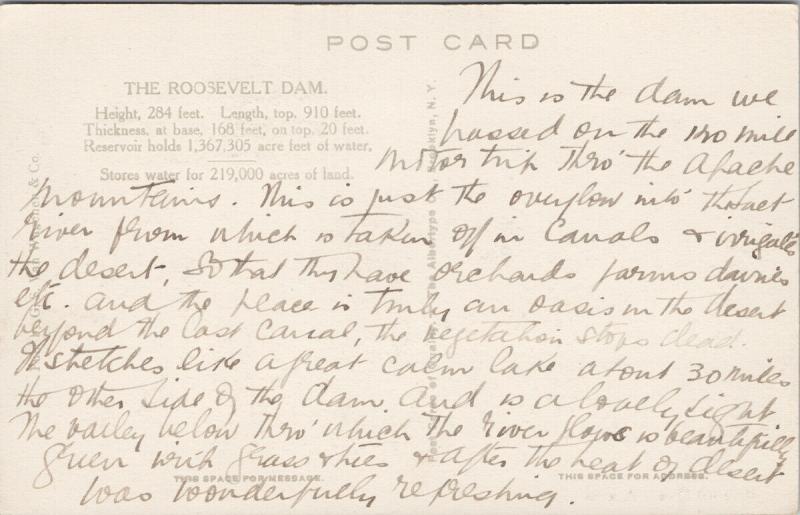 POST CARD
THE ROOSEVELT DAM.
Height, 284 feet. Length, top. 910 feet.
Thickness, at base, 168 feet, on top. 20 feet.
Reservoir holds 1,367,305 acre feet of water,
Stores water for 219,000 acres of land.
This is the dam we
passed on the 120 mile
motor trip thro' the Apache
mountains. This is just the overflow into the
river from which is taken off in Canals & irrigates
the desert, so that they have orchards farms dairies
etc. and the place is truly an oasis in the desert
beyond the last canal, the vegetation stops dead.
It stretches like a great calm lake about 30 miles
the other side of the dam and is a lovely sight
The valley below thro' which the river flows is beautifully
green with grass & trees & after the heat of desert
was wonderfully refreshing.
THIS SPACE FOR MESSAGE.
THIS SPACE FOR ADDRESS.
Albertype Co., Brooklyn, N. Y.